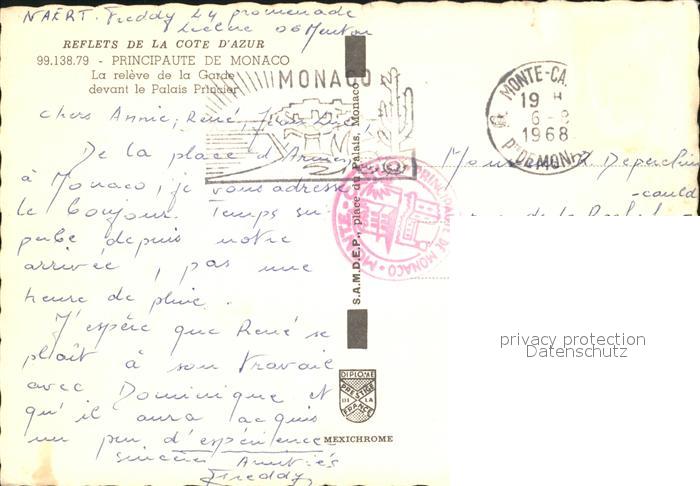 NAËRT. Freddy 24 promenade
06 Menton
REFLETS DE LA COTE D'AZUR
99.138.79 - PRINCIPAUTE DE MONACO
La relève de la Garde
devant le Palais Princier
MONACO
MONTE-CA
19 H
6-8
1968
PTÉ DE MON
chers Annie, René,
De la place d'Armes,
à Monaco, je vous adresse
le bonjour. Temps su-
perbe depuis notre
arrivée, pas une
heure de pluie.
J'espère que René se
plaît à son travail
avec Dominique et
qu'il aura acquis
un peu d'expérience
sincères Amitiés
Freddy
S.A.M.D.E.P., place du Palais, Monaco
PRINCIPAUTE DE MONACO
DIPLOME
PRESTIGE
DE LA
FRANCE
MEXICHROME
privacy protection
Datenschutz